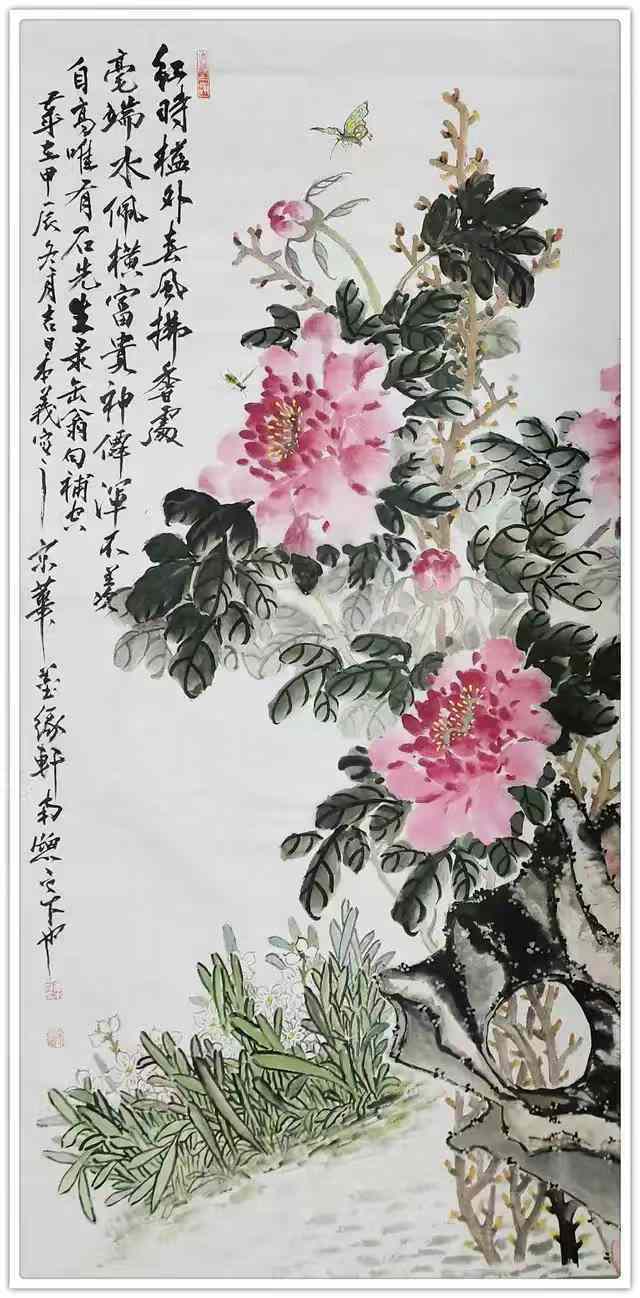 紅時檻外春風拂香處
毫端水佩橫富貴神僊渾不羨
自高唯有石先生录缶翁句補空
歲在甲辰冬月吉日本義寫之于京華墨緣軒南窗之下也